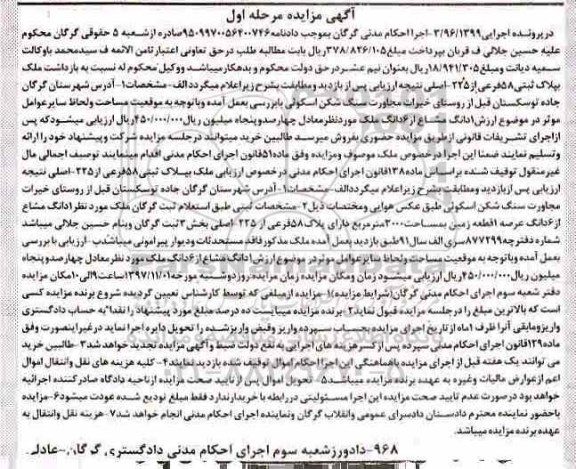 آگهی مزایده مرحله اول
در پرونده اجرایی ۳/۹۶/۱۳۹۹-اجرا احکام مدنی گرگان بموجب دادنامه ۹۵۰۹۹۷۰۰۵۶۴۰۰۷۴۶ صادره از شعبه ۵ حقوقی گرگان محکوم
علیه حسین جلالی ف قربان بپرداخت مبلغ ۳۷۸/۸۲۶/۱۰۵ ریال بابت مطالبه طلب در حق تعاونی اعتبار ثامن الائمه ف سیدمحمد باوکالت
سمیه دیانت و مبلغ ۱۸/۹۴۱/۳۰۵ ریال بعنوان نیم عشر در حق دولت محکوم و بدهکار میباشد و وکیل محکوم له نسبت به بازداشت ملک
بپلاک ثبتی ۵۸ فرعی از ۲۲۵-اصلی نتیجه ارزیابی پس از بازدید و مطابقت بشرح زیر اعلام میگردد الف- مشخصات ۱- آدرس شهرستان گرگان
جاده توسکستان قبل از روستای خیرات مجاورت سنگ شکن اسکوتی بابررسی بعمل آمده وباتوجه به موقعیت مساحت ولحاظ سایر عوامل
موثر در موضوع ارزش ۱دانگ مشاع از ۶دانگ ملک موردنظر معادل چهارصدوپنجاه میلیون ریال ۴۵۰/۰۰۰/۰۰۰ ریال ارزیابی میشود که پس
از اجرای تشریفات قانونی از طریق مزایده حضوری بفروش میرسد طالبین خرید میتوانند در جلسه مزایده شرکت و پیشنهاد خود را ارائه
وتسلیم نمایند ضمنا این اجرا در خصوص ملک موصوف ومزایده وفق ماده ۵۱ قانون اجرای احکام مدنی اقدام مینمایند توصیف اجمالی مال
غیرمنقول توقیف شده بر اساس ماده ۱۳۸ قانون اجرای احکام مدنی در خصوص ارزیابی ملک بپلاک ثبتی ۵۸ فرعی از ۲۲۵-اصلی نتیجه
ارزیابی پس از بازدید ومطابقت بشرح زیر اعلام میگردد الف- مشخصات ۱- آدرس شهرستان گرگان جاده توسکستان قبل از روستای خیرات
مجاورت سنگ شکن اسکوتی طبق عکس هوایی ومختصات ذیل ۲- مشخصات ثبتی طبق استعلام ثبت گرگان ملک مورد نظر ۱دانگ مشاع
از ۶دانگ عرصه ۱قطعه زمین بمساحت ۳۰۰۰ مترمربع دارای پلاک ۵۸ فرعی از ۲۲۵ اصلی بخش ۳ ثبت گرگان وبنام حسین جلالی میباشد
شماره دفترچه ۸۷۷۲۹۹ سری الف سال ۹۱ طبق بازدید بعمل آمده ملک مذکور فاقد مستحدثات ودیوار پیرامونی میباشد ب- ارزیابی با بررسی
بعمل آمده وباتوجه به موقعیت مساحت ولحاظ سایر عوامل موثر در موضوع ارزش ۱دانگ مشاع از ۶دانگ ملک مورد نظر معادل چهارصدوپنجاه
میلیون ریال ۴۵۰/۰۰۰/۰۰۰ ریال ارزیابی میشود زمان ومکان مزایده زمان مزایده: روز دوشنبه مورخه ۱۳۹۷/۱۱/۰۱ ساعت ۹ الی ۱۰ مکان مزایده
دفتر شعبه سوم اجرای احکام مدنی گرگان (شرایط مزایده) ۱- مزایده از مبلغی که توسط کارشناس تعیین گردیده شروع برنده مزایده کسی
است که بالاترین مبلغ را در جلسه مزایده قبول نماید ۲- برنده مزایده میبایست ده درصد مبلغ مورد پیشنهاد را نقدا به حساب دادگستری
واریز ومابقی آنرا ظرف ۱ماه از تاریخ اجرای مزایده بحساب سپرده واریز وقبض واریز شده را تحویل دایره اجرا نماید در غیر اینصورت وفق
ماده ۱۲۹ قانون اجرای احکام مدنی سپرده پس از کسر هزینه های اجرای به نفع دولت ضبط وآگهی مزایده تجدید خواهد شد ۳- طالبین خرید
می توانند یک هفته قبل از اجرای مزایده باهماهنگی این اجرا احکام اموال توقیف شده بازدید نمایند ۴- کلیه هزینه های نقل وانتقال اموال
اعم از عوارض مالیات وغیره به عهده برنده مزایده میباشد ۵- تحویل اموال بعد از تایید صحت مزایده از ناحیه دادگاه صادرکننده اجرائیه
خواهد بود در صورت عدم تایید صحت مزایده این اجرا مسئولیتی در رابطه با خریدار ندارد فقط مبلغ تودیع شده عودت میشود ۶- مزایده
باحضور نماینده محترم دادستان دادسرای عمومی وانقلاب گرگان ونماینده اجرای احکام مدنی انجام خواهد شد ۷- هزینه نقل وانتقال به
عهده برنده مزایده میباشد.
۹۶۸-دادورز شعبه سوم اجرای احکام مدنی دادگستری گرگان-عادلی